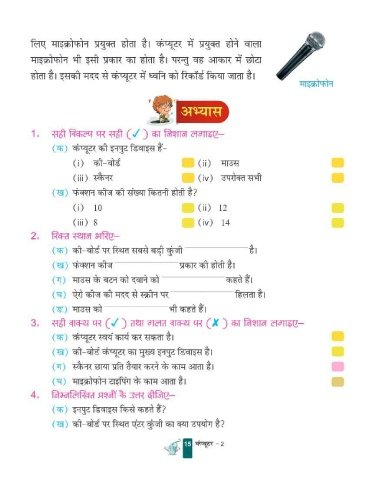 लिए माइक्रोफोन प्रयुक्त होता है। कंप्यूटर में प्रयुक्त होने वाला
माइक्रोफोन भी इसी प्रकार का होता है। परन्तु वह आकार में छोटा
होता है। इसकी मदद से कंप्यूटर में ध्वनि को रिकॉर्ड किया जाता है।
माइक्रोफोन
अभ्यास
1. सही विकल्प पर सही (✓) का निशान लगाइए–
(क) कंप्यूटर की इनपुट डिवाइस हैं-
(i) की-बोर्ड (ii) माउस
(iii) स्कैनर (iv) उपरोक्त सभी
(ख) फंक्शन कीज की संख्या कितनी होती है?
(i) 10 (ii) 12
(iii) 8 (iv) 14
2. रिक्त स्थान भरिए–
(क) की-बोर्ड पर स्थित सबसे बड़ी कुंजी ____________ है।
(ख) फंक्शन कीज ____________ प्रकार की होती है।
(ग) माउस के बटन को दबाने को ____________ कहते हैं।
(घ) ऐरो कीज की मदद से स्क्रीन पर ____________ हिलता है।
(ङ) माउस को ____________ भी कहते हैं।
3. सही वाक्य पर (✓) तथा गलत वाक्य पर (✗) का निशान लगाइए–
(क) कंप्यूटर स्वयं कार्य कर सकता है।
(ख) की-बोर्ड कंप्यूटर का मुख्य इनपुट डिवाइस है।
(ग) स्कैनर छाया प्रति तैयार करने के काम आता है।
(घ) माइक्रोफोन टाइपिंग के काम आता है।
4. निम्नलिखित प्रश्नों के उत्तर दीजिए–
(क) इनपुट डिवाइस किसे कहते हैं?
(ख) की-बोर्ड पर स्थित एंटर कुंजी का क्या उपयोग है?
15 कंप्यूटर – 2